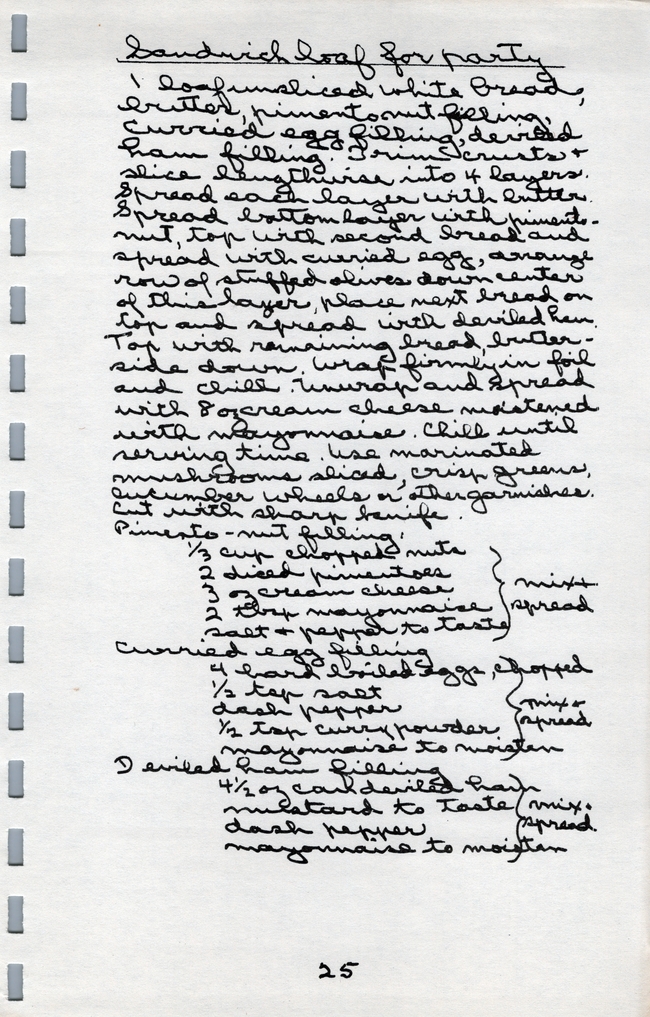 Sandwich loaf for party
1 loaf unsliced white bread,
butter, pimento nut filling,
curried egg filling, deviled
ham filling. Trim crusts +
slice lengthwise into 4 layers.
Spread each layer with butter.
Spread bottom layer with pimento-
nut, top with second bread and
spread with curried egg, arrange
row of stuffed olives down center
of this layer, place next bread on
top and spread with deviled ham.
Top with remaining bread, butter-
side down. Wrap firmly in foil
and chill. Unwrap and spread
with 8 oz cream cheese moistened
with mayonnaise. Chill until
serving time. Use marinated
mushrooms sliced, crisp greens,
cucumber wheels or other garnishes.
Cut with sharp knife.
Pimento-nut filling:
1/3 cup chopped nuts
2 diced pimentoes
3 oz cream cheese mix +
2 tbsp mayonnaise spread
salt + pepper to taste
Curried egg filling
4 hard boiled eggs, chopped
1/2 tsp salt
dash pepper mix + spread
1/2 tsp curry powder
mayonnaise to moisten
Deviled ham filling
4 1/2 oz can deviled ham
mustard to taste mix +
dash pepper spread.
mayonnaise to moisten
25